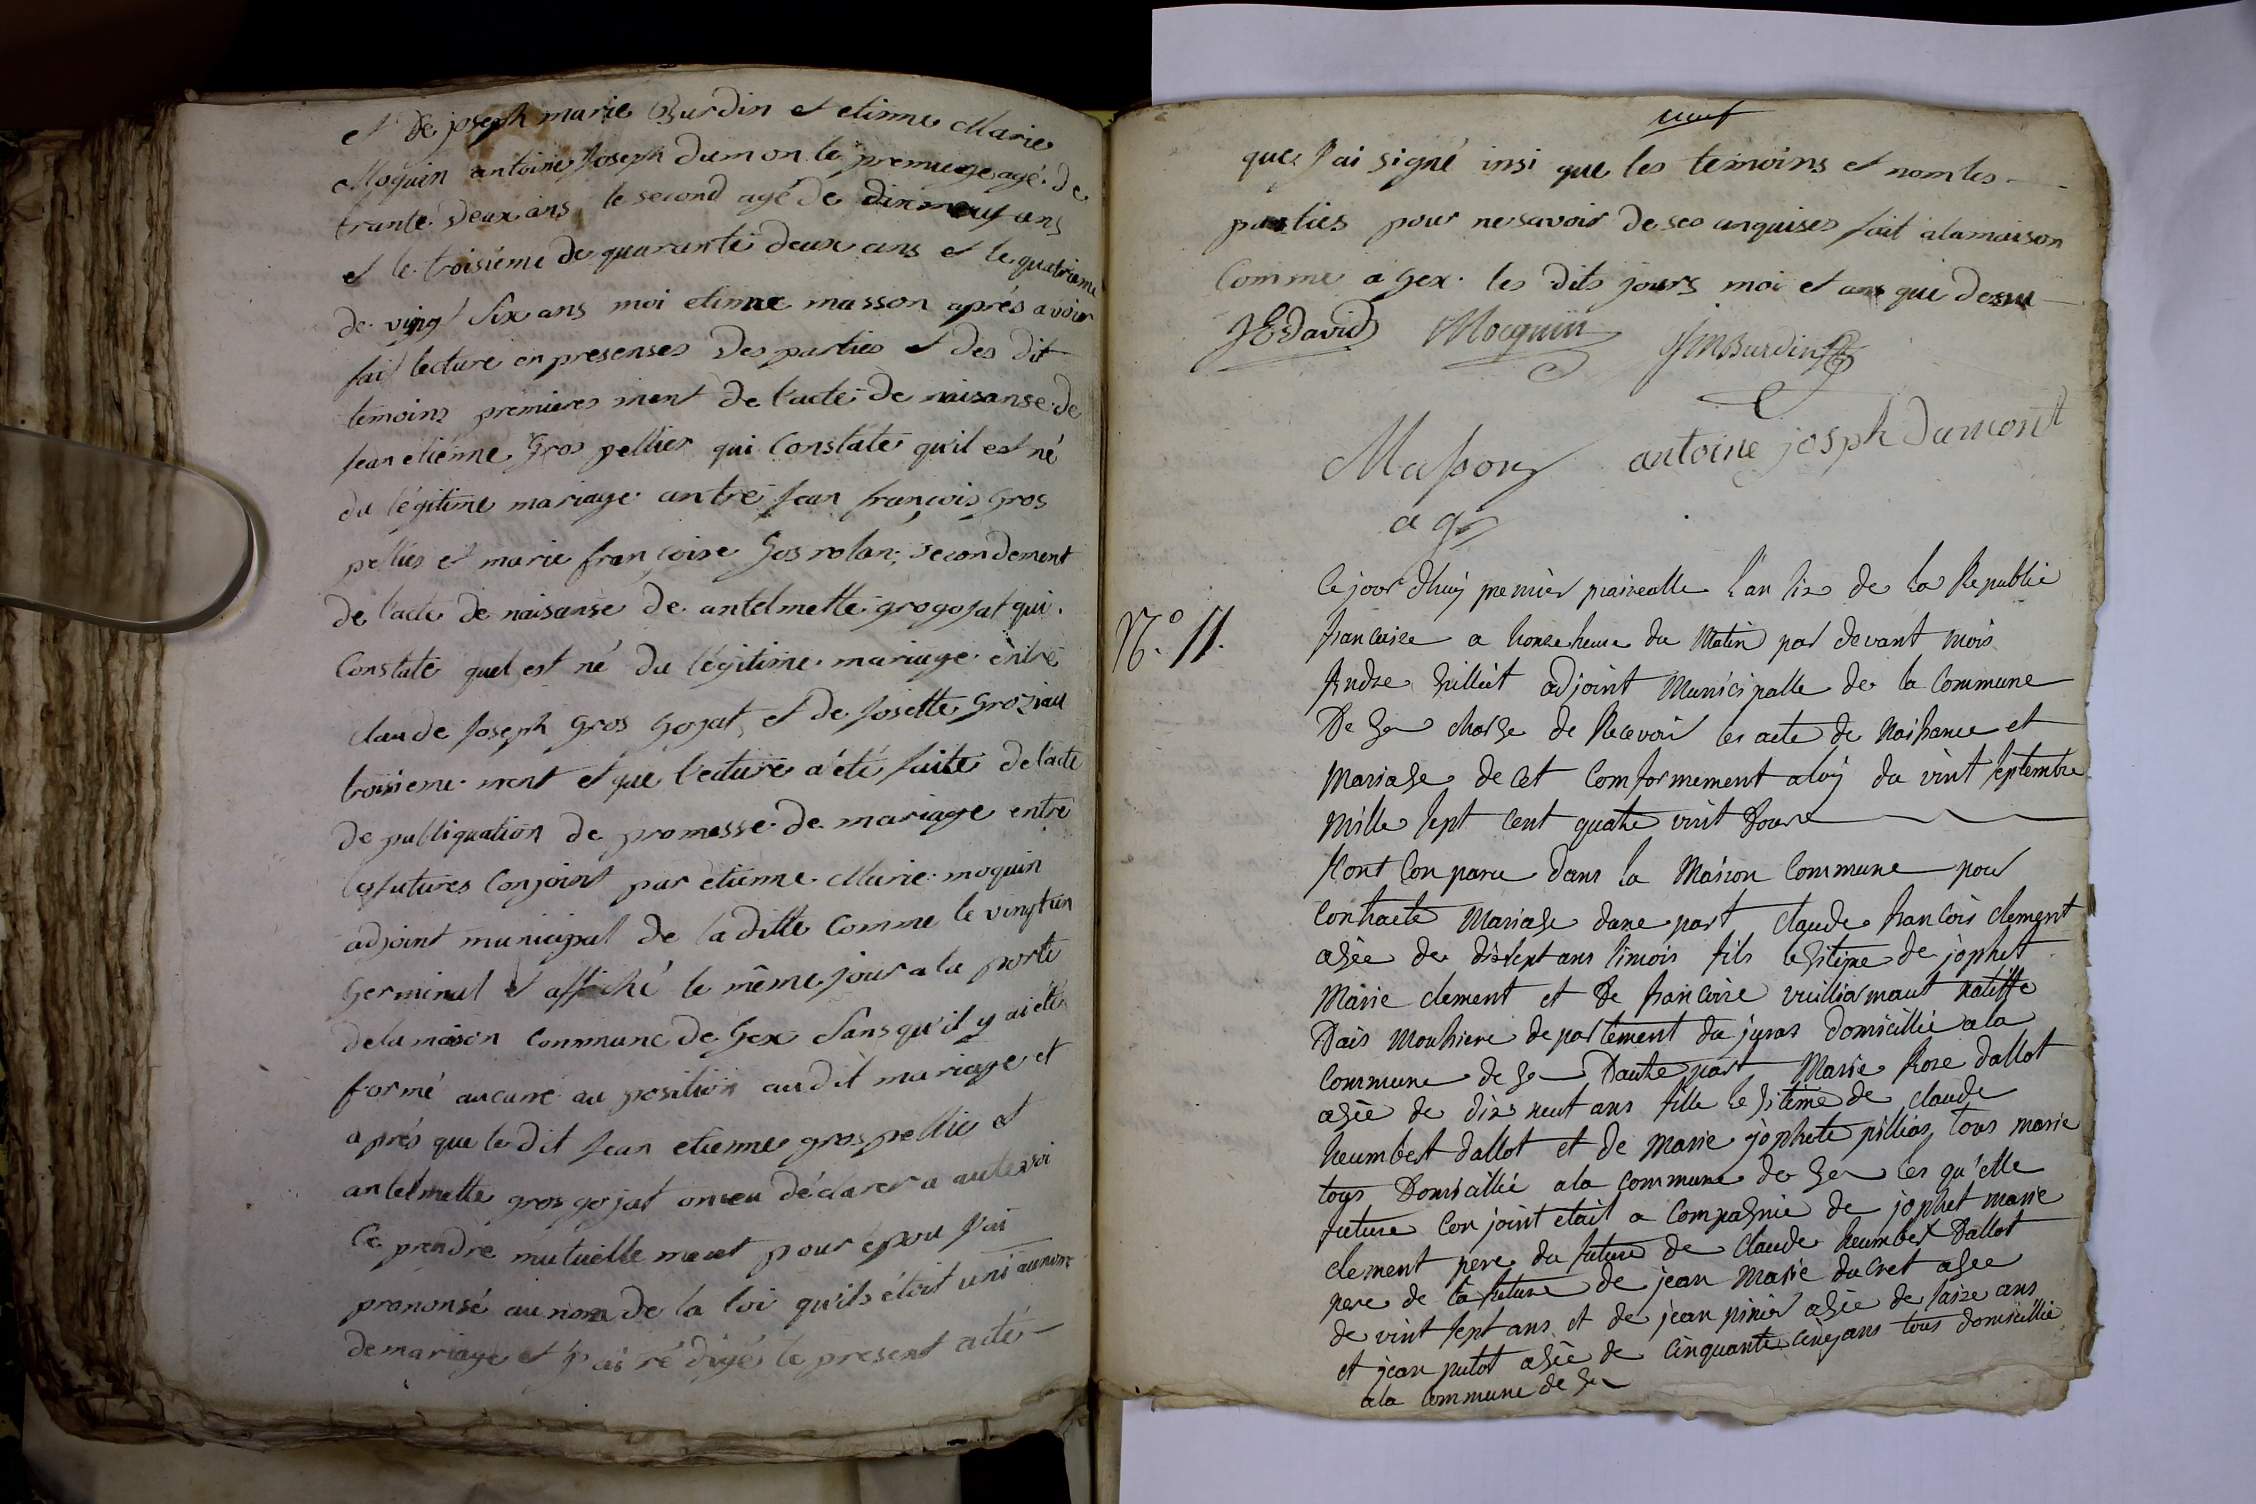 et De joseph marie Burdin et etinne Marie
Moquin antoine Joseph dumon le premiere agé de
trante deux ans, le second agé de dix neuf ans
et le troisieme de quarante deux ans et le quatrieme
de vingt Six ans moi etinne masson aprés avoir
fait lecture en presenses des parties et des dit
temoins premieres ment de l'acte de naisanse de
Jean etienne Gros pellier qui Constate qu'il est né
du légitime mariage antre Jean françois Gros
pellier et marie françoise Gos rolan, secondement
de l'acte de naisanse de antelmette grogojat qui
Constate quel est né du légitime mariage entre
claude Joseph Gros Gojat, et de Josette Groziau
troisieme ment et que lecture a été faite de l'acte
de publiquation de promesse de mariage entre
les futures Conjoint par etienne Marie moquin
adjoint municipal de la ditte Comme le vingt un
Germinal et affiché le même jour a la porte
de la maison commune de Gex Sans qu'il y ai été
formé aucune au position au dit mariage et
aprés que le dit Jean etienne gros pellie et
antelmette gros gojat on eu déclarer a aute voi
Ce prendre mutuelle ment pour epou J'ai
prononsé au nom de la loi qu'ils étoit uni au nom
de mariage et J'ai ré digé le present acte
neuf
que J'ai signé insi que les temoins et nom les
parties pour ne savoir de ses anquises fait a la maison
Comme a Gex les dits jours moi et ans que desu
JEDavid Mocquin JMBurdin
Masson antoine josph Dumont
a g
N.o 11.
Ce jour d'huy premier prairealle l'an six de la Republie
francaise a honze heure du Matin par devant mois
Andre hilliet adjoint Municipalle de la Commune
De Gex charge de Recevoir les acte de Naissance et
Mariage de cet Comformement a loÿ du vint septembre
Mille sept cent quatre vint Douze
sont Con paru dans la Maison Commune pour
Contracte Mariage dune part claude francois clement
agée de dixsept ans simois fils legitime de jophet
Marie clement et De francoise vuilliarmaut natiffe
Dais Mouhiere departement du juras domicillié a la
Commune de Gex Dautre part Marie Rose dallot
agée de dix neuf ans fille legiteme de claude
heumbert dallot et de Marie jophete pillias tous marie
tous Domicillié a la commune de Gex les qu'elle
future Con joint était a Compagnie de jophet marie
clement pere du future de Claude heumbert Dallot
pere de la future de jean Marie ducret agee
de vint sept ans et de jean pinier agée de saize ans
et jean putot agée de cinquante cinq ans tous domicillie
a la commune de Gex